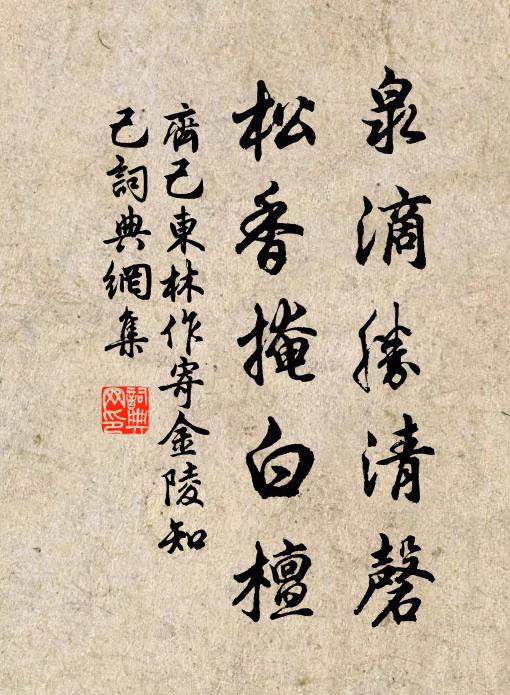 泉滴勝清磬
松香掩白檀
齊己東林作寄金陵知
己詞典網集
詞典
网印